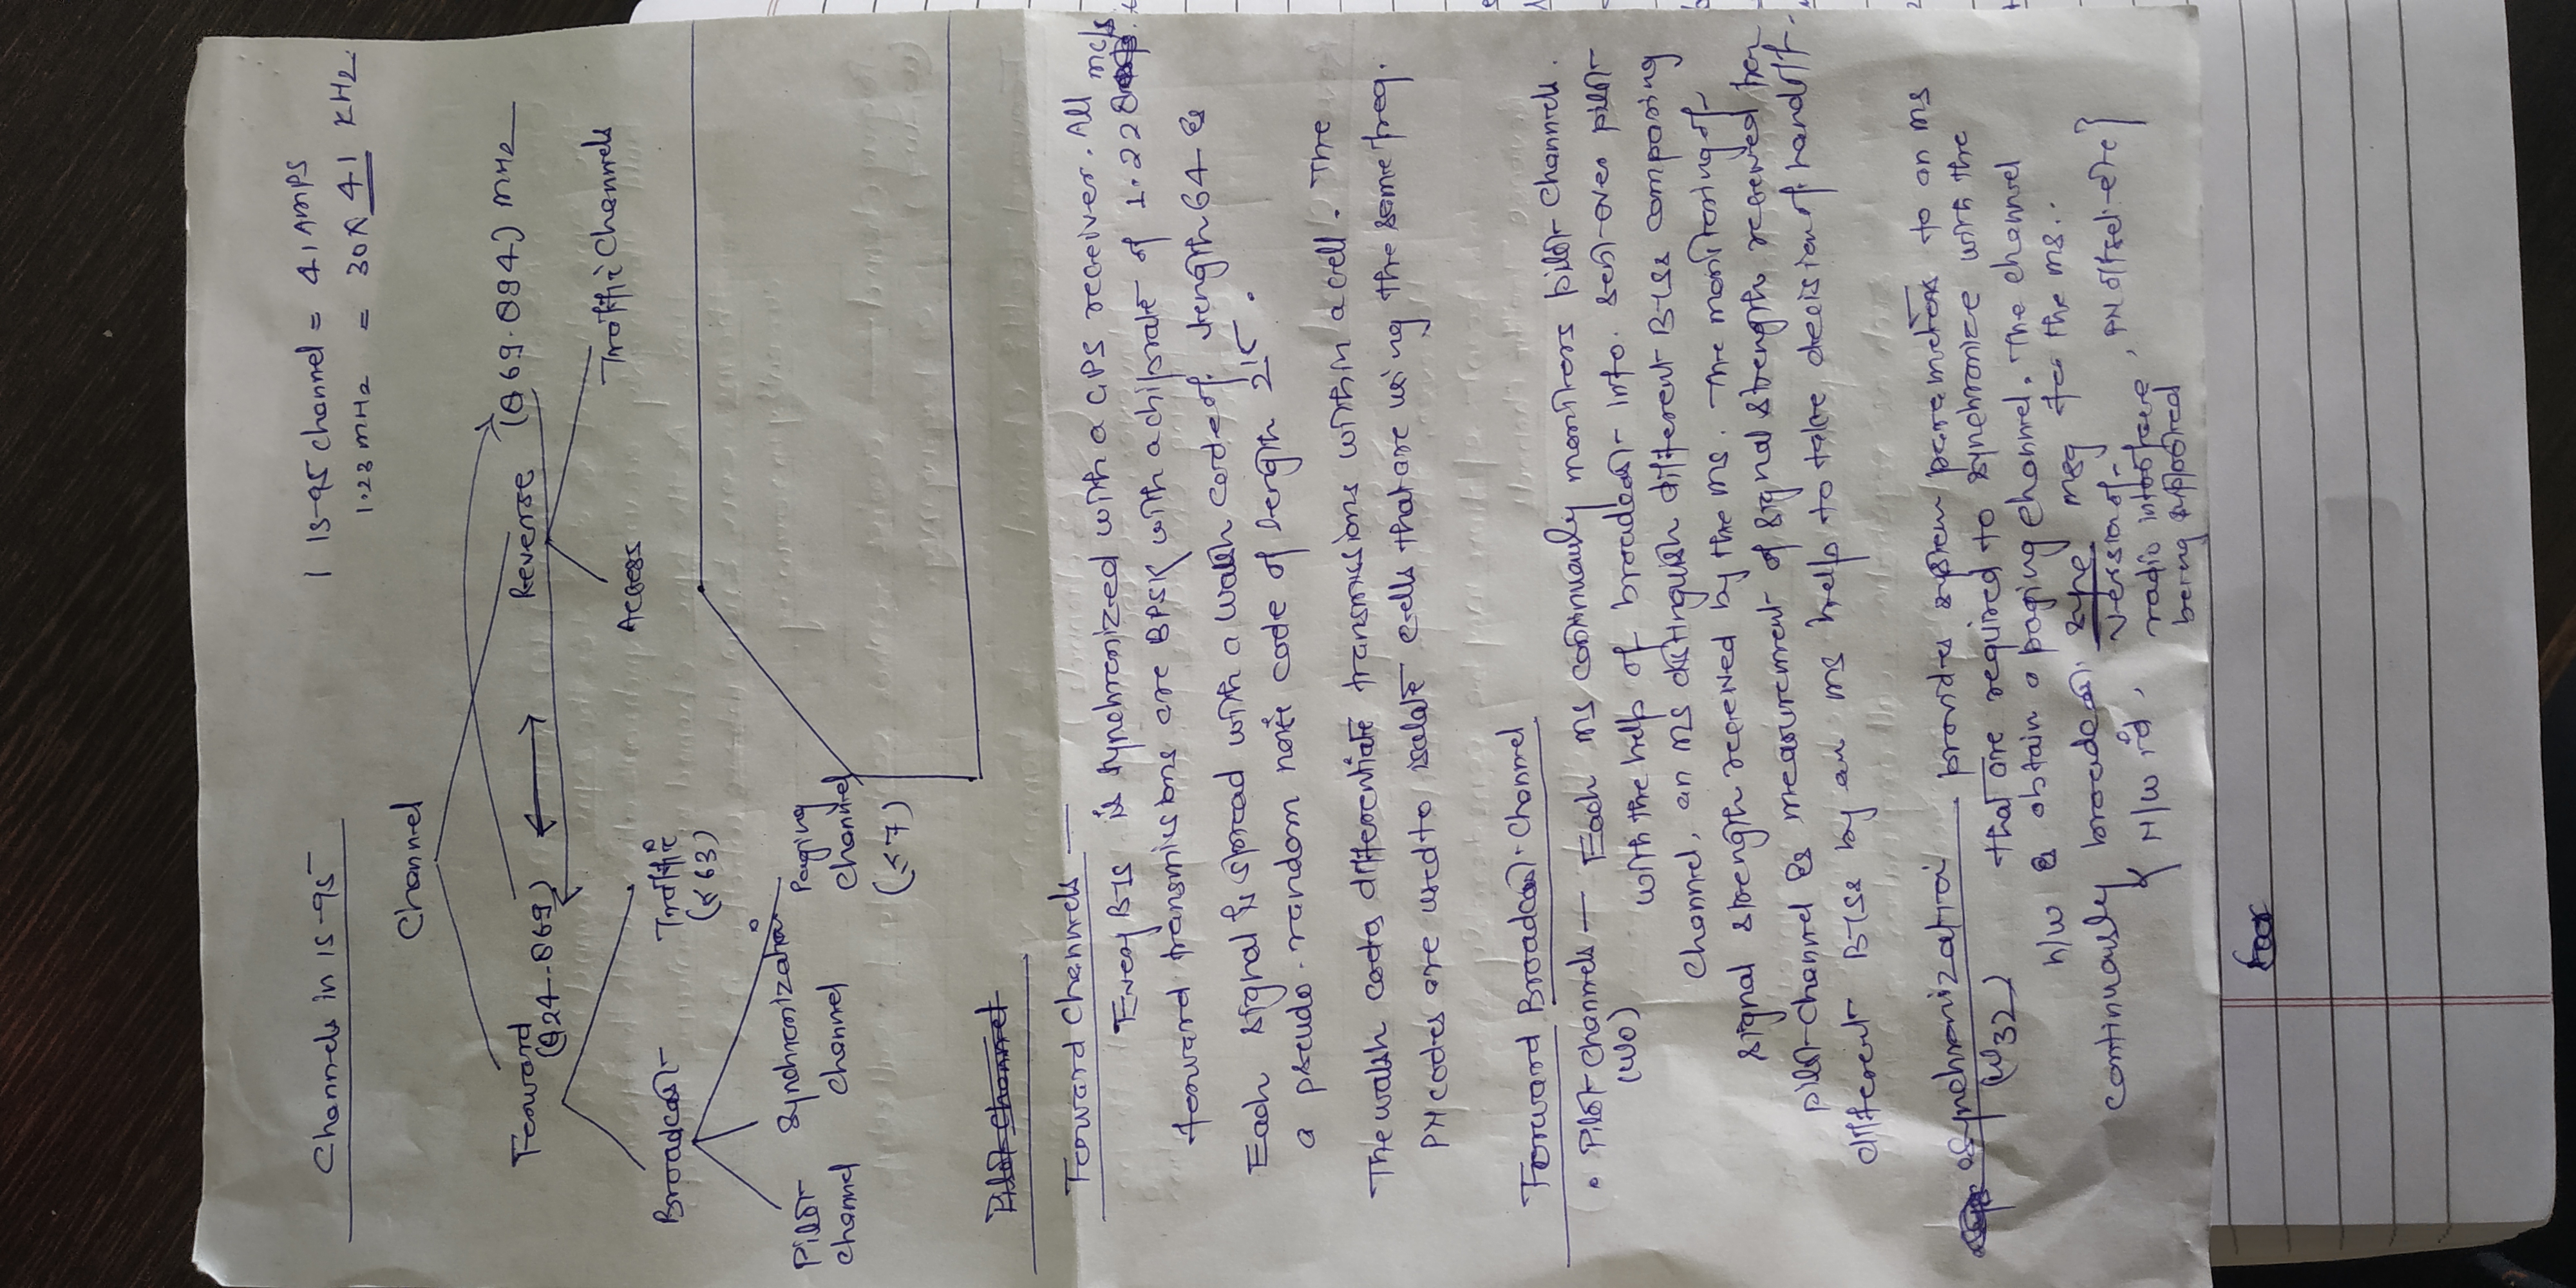 Channels in IS-95
1 IS-95 channel = 41 AMPS
1.23 MHz = 30 X 41 KHz.
Channel
Forward
(824-869)
Reverse (869-894) MHz
Access
Traffic Channels
Broadcast
Traffic
(≤ 63)
Pilot
channel
Synchronization
channel
Paging
channel
(≤ 7)
Pilot Channel
Forward Channels —
Every BTS is synchronized with a GPS receiver. All
forward transmissions are BPSK with a chip rate of 1.228 mc/s
Each signal is spread with a Walsh code of length 64 &
a pseudo-random noise code of length 2^15.
The walsh codes differentiate transmissions within a cell. The
PN codes are used to isolate cells that are using the same freq.
Forward Broadcast Channel
• Pilot channels — Each MS continuously monitors pilot channels.
(W0) with the help of broadcast info. sent over pilot
channel, an MS distinguish different BTSs comparing
signal strength received by the MS. The monitoring of
pilot channel & measurement of signal strength received from
different BTSs by an MS help to take decision of handoff.
Synchronization provides system parameters to an MS
(W32) that are required to synchronize with the
n/w & obtain a paging channel. The channel
continuously broadcast sync msg for the MS..
{ N/w id, version of radio interface being supported, PN offset etc }
for